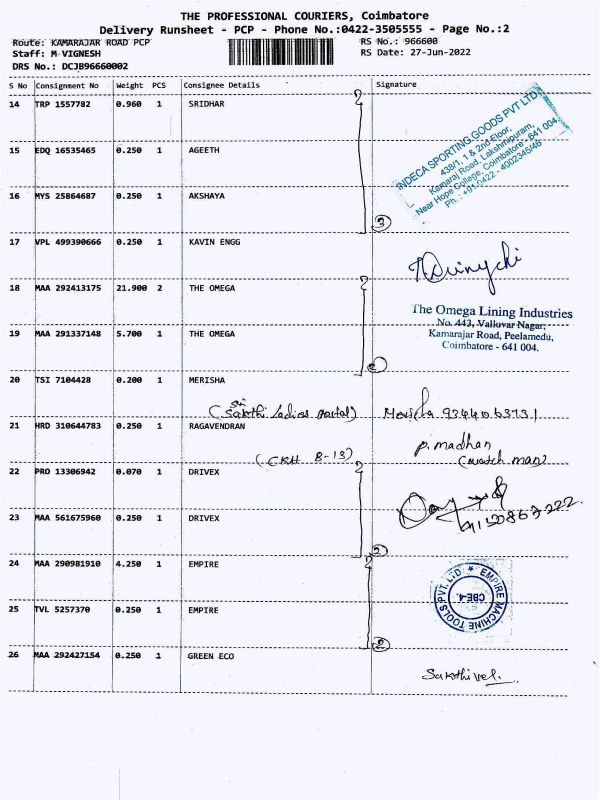 THE PROFESSIONAL COURIERS, Coimbatore
Delivery Runsheet - PCP - Phone No.:0422-3505555 - Page No.:2
Route: KAMARAJAR ROAD PCP
RS No.: 966600
Staff: M VIGNESH
RS Date: 27-Jun-2022
DRS No.: DCJB96660002
S No Consignment No Weight PCS Consignee Details Signature
14 TRP 1557782 0.960 1 SRIDHAR
INDECA SPORTING GOODS PVT LTD
438/1, 1 & 2nd Floor,
Kamaraj Road, Lakshmipuram,
Near Hope College, Coimbatore - 641 004.
Ph.: +91-0422 - 4002345/46
15 EDQ 16535465 0.250 1 AGEETH
16 MYS 25864687 0.250 1 AKSHAYA
3
17 VPL 499390666 0.250 1 KAVIN ENGG
18 MAA 292413175 21.900 2 THE OMEGA
The Omega Lining Industries
No. 443, Valluvar Nagar,
Kamarajar Road, Peelamedu,
Coimbatore - 641 004.
19 MAA 291337148 5.700 1 THE OMEGA
20 TSI 7104428 0.200 1 MERISHA
(Sakthi ladies hostel)
21 HRD 310644783 0.250 1 RAGAVENDRAN
P. madhan
(watch man)
22 PRO 13306942 0.070 1 DRIVEX
23 MAA 561675960 0.250 1 DRIVEX
2
24 MAA 290981910 4.250 1 EMPIRE
EMPIRE MACHINE TOOLS PVT. LTD.
CBE-4.
25 TVL 5257370 0.250 1 EMPIRE
2
26 MAA 292427154 0.250 1 GREEN ECO
Sakthivel.